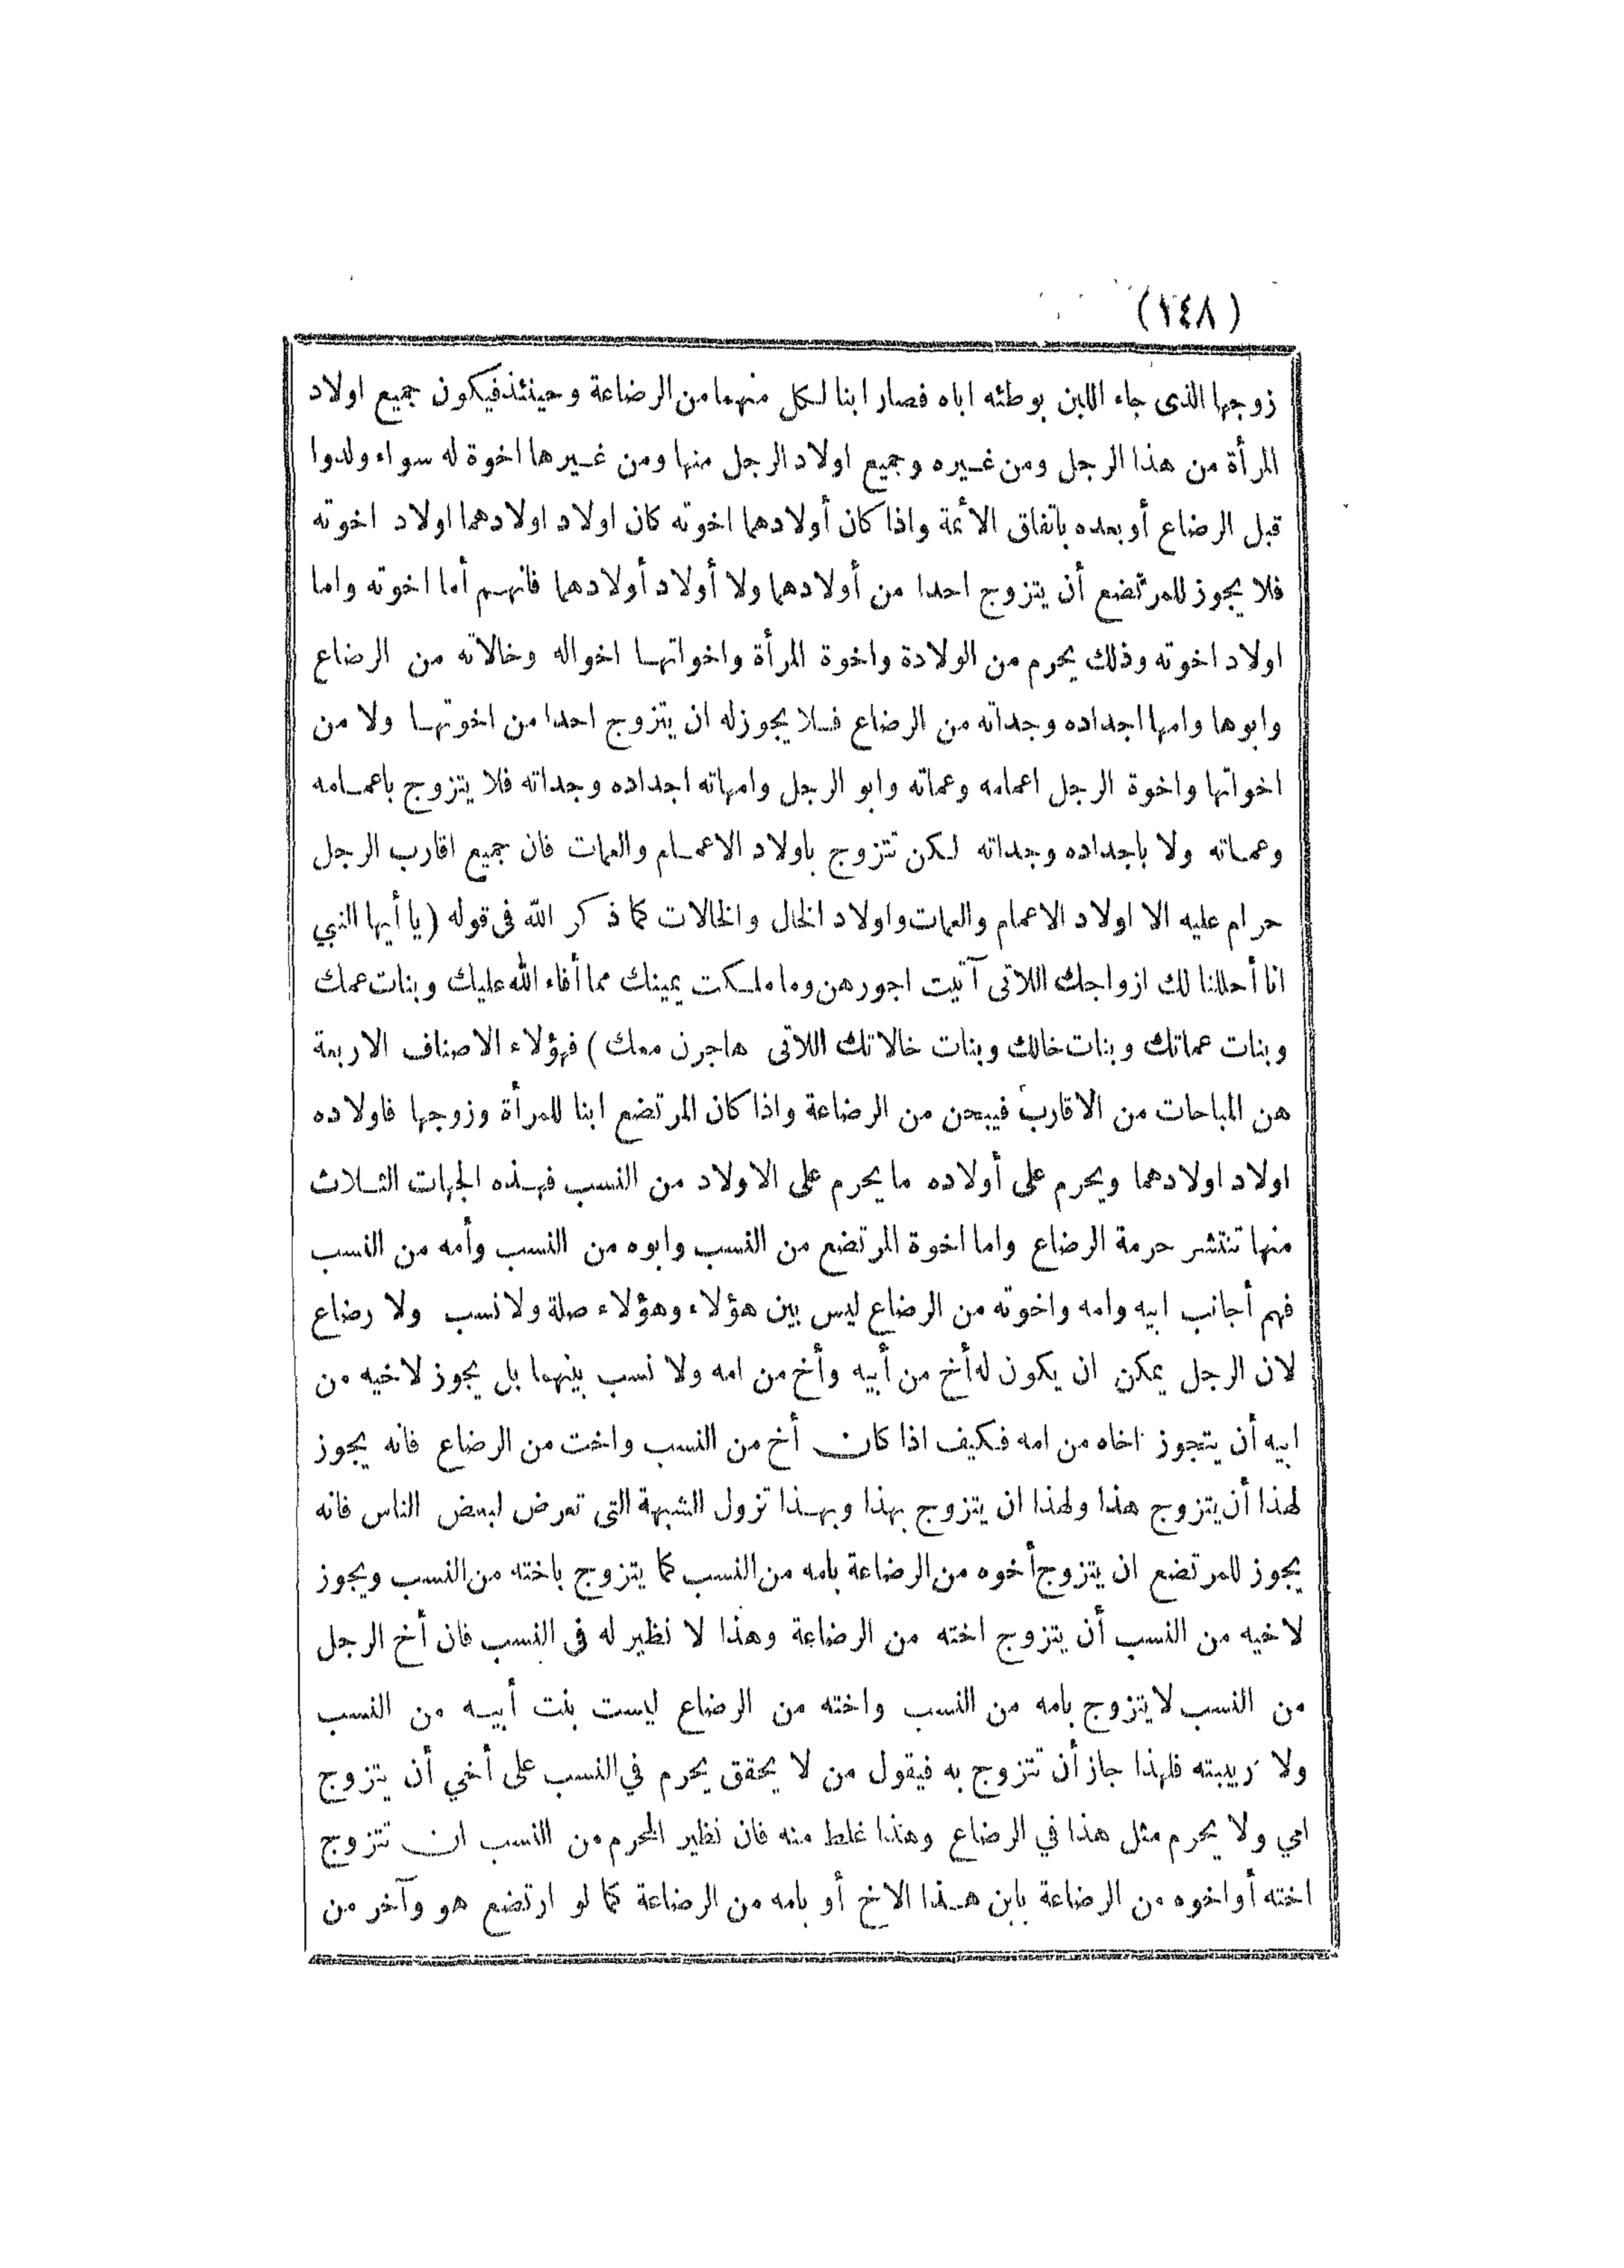 (١٤٨)
زوجها الذى جاء اللبن بوطئه اباه فصار ابنا لكل منهما من الرضاعة وحينئذ فيكون جميع اولاد
المرأة من هذا الرجل ومن غيره وجميع اولاد الرجل منها ومن غيرها اخوة له سواء ولدوا
قبل الرضاع أو بعده باتفاق الأئمة واذا كان أولادهما اخوته كان اولاد اولادهما اولاد اخوته
فلا يجوز للمرتضع أن يتزوج احدا من أولادهما ولا أولاد أولادهما فانهم أما اخوته واما
اولاد اخوته وذلك يحرم من الولادة واخوة المرأة واخواتها اخواله وخالاته من الرضاع
وابوها وامها اجداده وجداته من الرضاع فلا يجوز له ان يتزوج احدا من اخوتها ولا من
اخواتها واخوة الرجل اعمامه وعماته وابو الرجل وامهاته اجداده وجداته فلا يتزوج باعمامه
وعماته ولا باجداده وجداته لكن تتزوج باولاد الاعمام والعمات فان جميع اقارب الرجل
حرام عليه الا اولاد الاعمام والعمات واولاد الخال والخالات كما ذكر الله فى قوله (يا أيها النبي
انا أحللنا لك ازواجك اللاتى آتيت اجورهن وما ملكت يمينك مما أفاء الله عليك وبنات عمك
وبنات عماتك وبنات خالك وبنات خالاتك اللاتى هاجرن معك) فهؤلاء الاصناف الاربعة
هن المباحات من الاقارب فيبحن من الرضاعة واذا كان المرتضع ابنا للمرأة وزوجها فاولاده
اولاد اولادهما ويحرم على أولاده ما يحرم على الاولاد من النسب فهذه الجهات الثلاث
منها تنتشر حرمة الرضاع واما اخوة المرتضع من النسب وابوه من النسب وأمه من النسب
فهم أجانب ابيه وامه واخوته من الرضاع ليس بين هؤلاء وهؤلاء صلة ولا نسب ولا رضاع
لان الرجل يمكن ان يكون له أخ من أبيه وأخ من امه ولا نسب بينهما بل يجوز لاخيه من
ابيه أن يتجوز اخاه من امه فكيف اذا كان أخ من النسب واخت من الرضاع فانه يجوز
لهذا أن يتزوج هذا ولهذا ان يتزوج بهذا وبهذا تزول الشبهة التى تعرض لبعض الناس فانه
يجوز للمرتضع ان يتزوج أخوه من الرضاعة بامه من النسب كما يتزوج باخته من النسب ويجوز
لاخيه من النسب أن يتزوج اخته من الرضاعة وهذا لا نظير له فى النسب فان أخ الرجل
من النسب لا يتزوج بامه من النسب واخته من الرضاع ليست بنت أبيه من النسب
ولا ربيبته فلهذا جاز أن تتزوج به فيقول من لا يحقق يحرم في النسب على أخي أن يتزوج
امي ولا يحرم مثل هذا في الرضاع وهذا غلط منه فان نظير المحرم من النسب ان تتزوج
اخته أو اخوه من الرضاعة بابن هذا الاخ أو بامه من الرضاعة كما لو ارتضع هو وآخر من